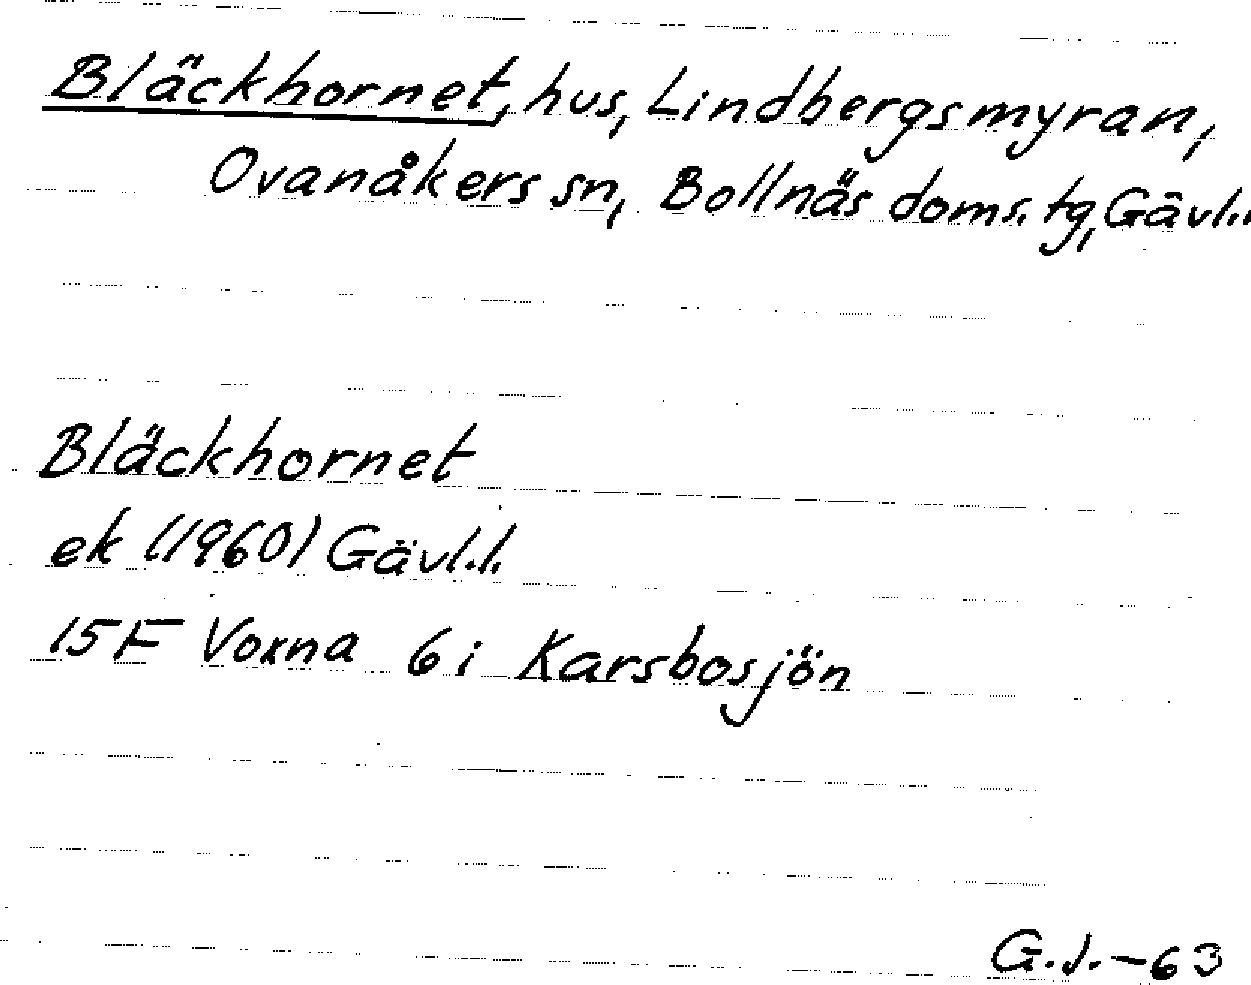 Bläckhornet, hus, Lindbergsmyran,
Ovanåkers sn, Bollnäs doms. tg, Gävl..
Bläckhornet
ek (1960) Gävl.l.
15F Voxna 6i Karsbosjön
G.J.-63